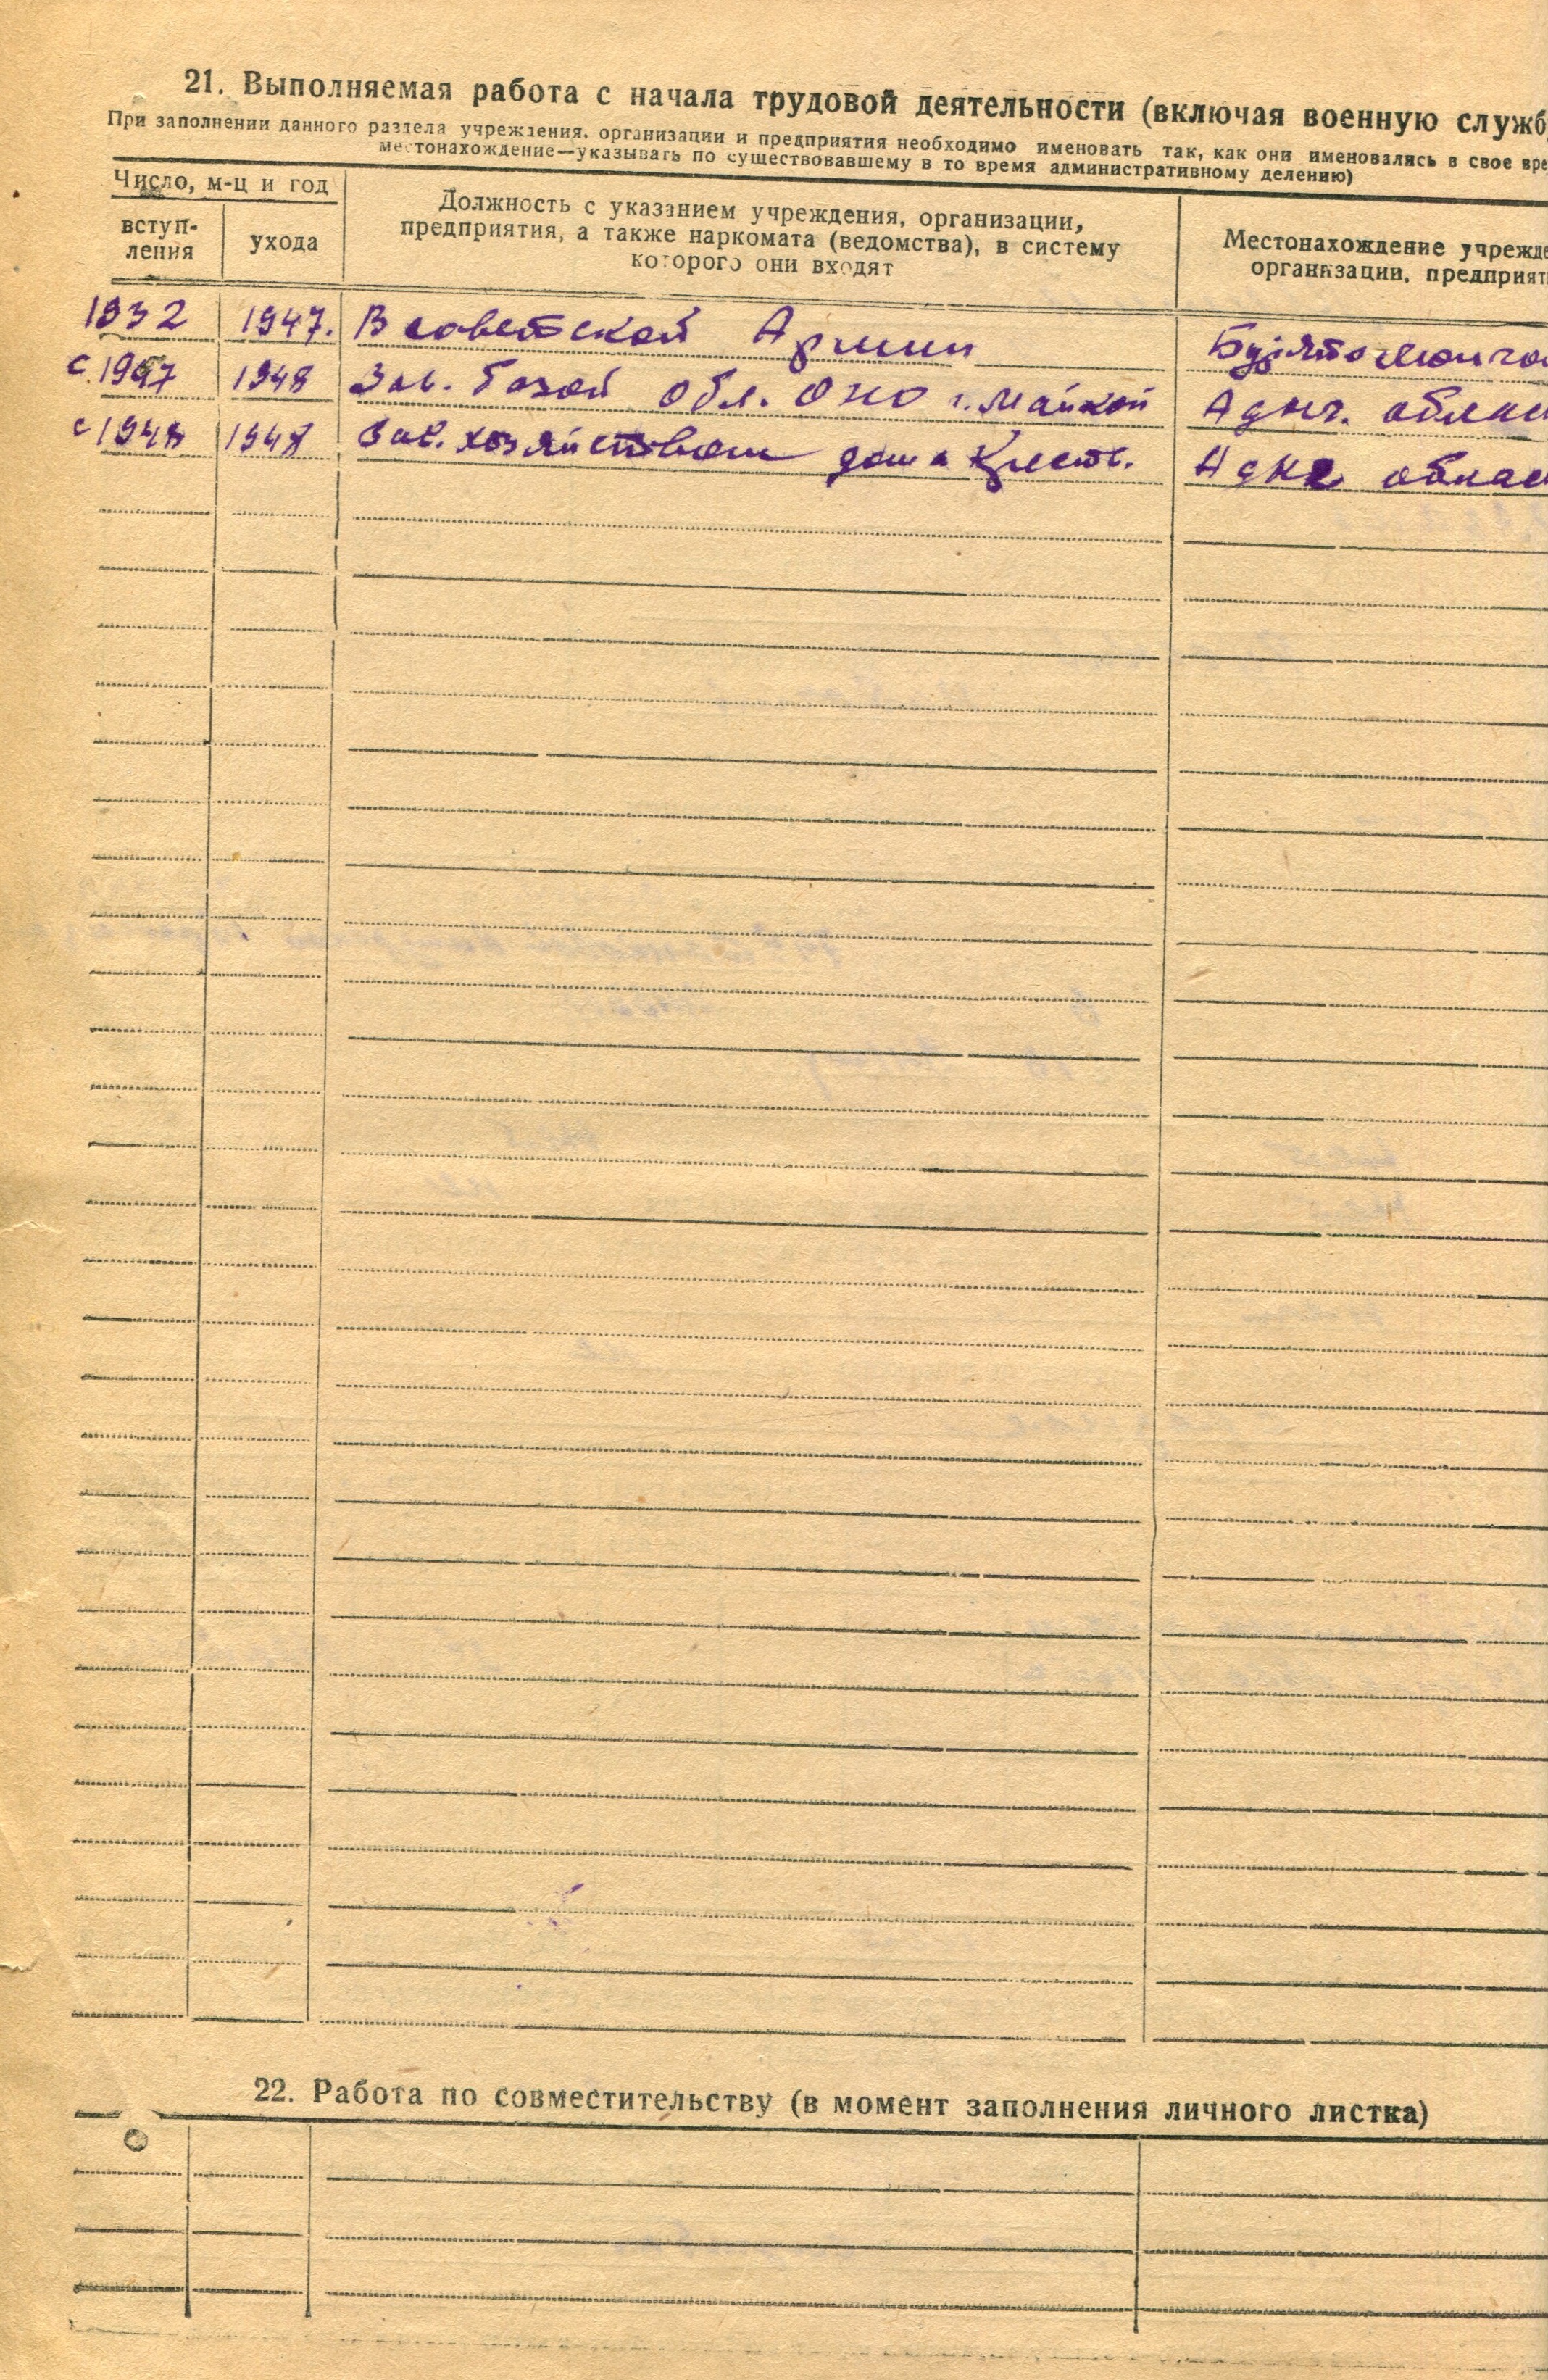 21. Выполняемая работа с начала трудовой деятельности (включая военную служб
При заполнении данного раздела учреждения, организации и предприятия необходимо именовать так, как они именовались в свое вре
местонахождение—указывать по существовавшему в то время административному делению)
Число, м-ц и год
вступ-
ления
ухода
Должность с указанием учреждения, организации,
предприятия, а также наркомата (ведомства), в систему
которого они входят
Местонахождение учрежде
организации, предприят
1932 1947. В советской Армии
с 1947 1948 Зав. базой обл. ОНО г. Майкоп Адыг. облас
с 1948 1948 Зав. хозяйством дома Крест. облас
22. Работа по совместительству (в момент заполнения личного листка)